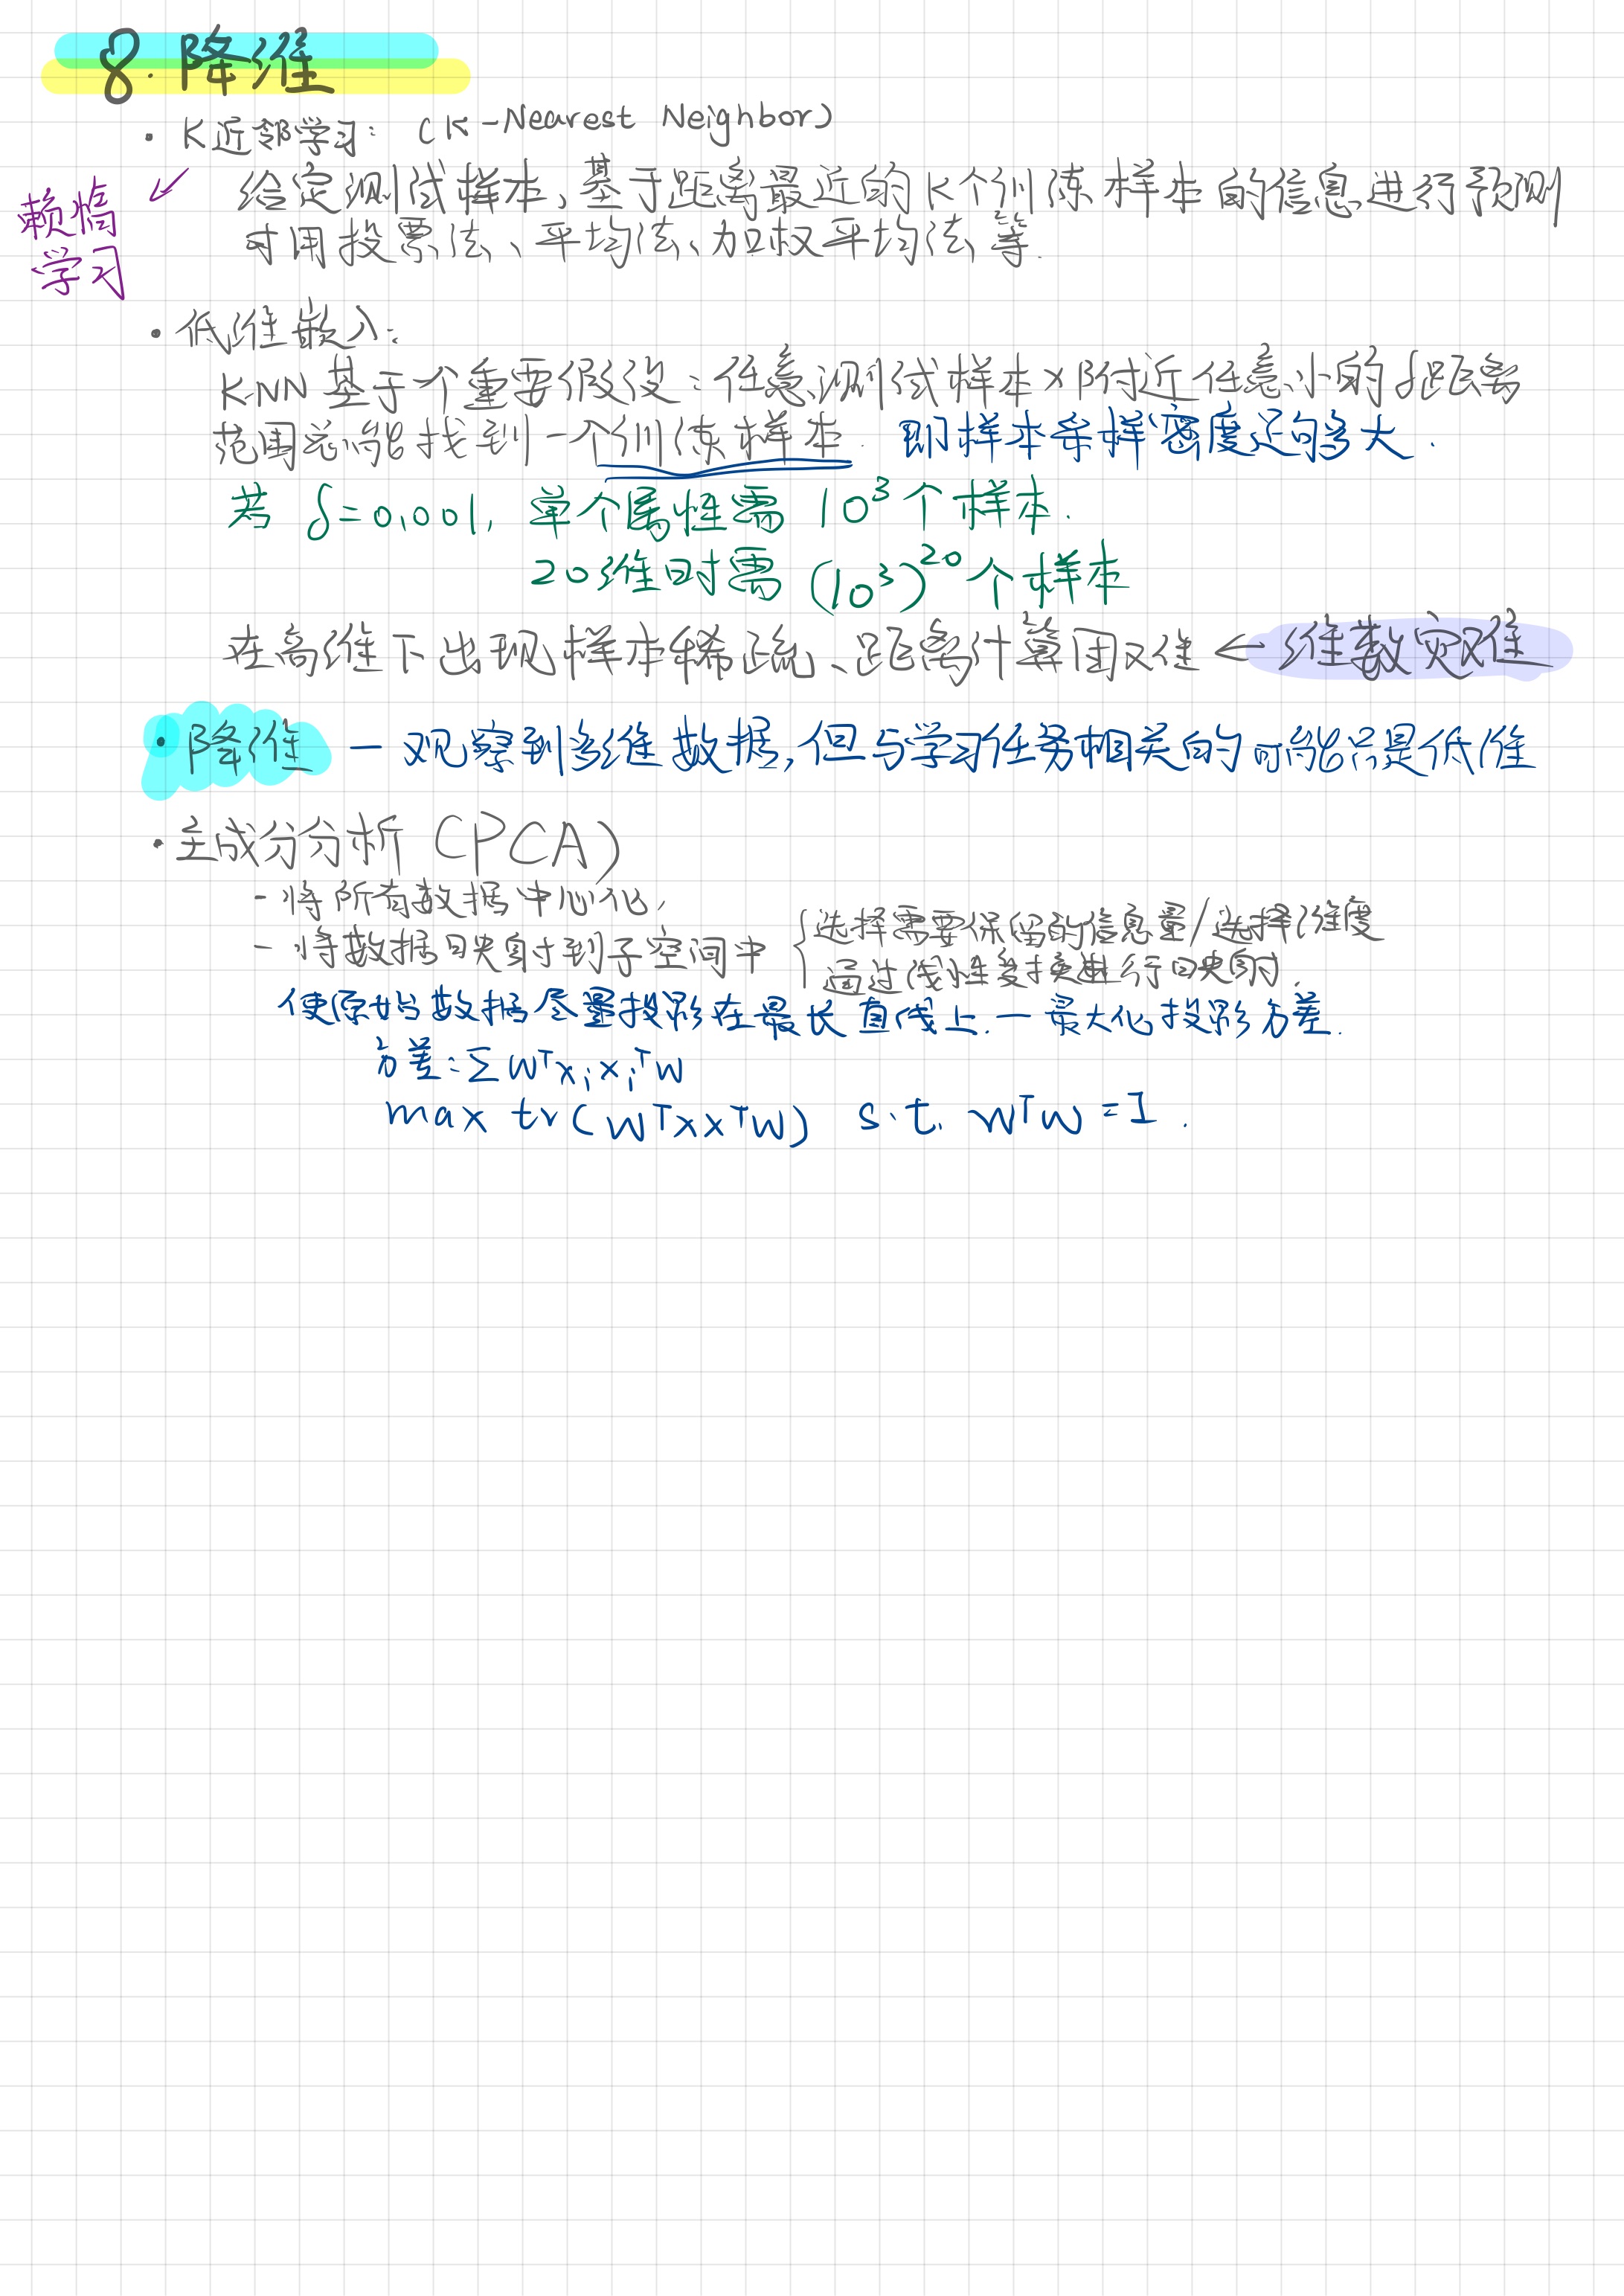 8. 降维
· K近邻学习: (K-Nearest Neighbor)
懒惰
学习
给定测试样本,基于距离最近的K个训练样本的信息进行预测
可用投票法、平均法、加权平均法等.
· 低维嵌入:
KNN 基于一个重要假设:任意测试样本x附近任意小的δ距离
范围总能找到一个训练样本. 即样本采样密度足够大.
若 δ=0.001, 单个属性需 10³个样本.
20维时需 (10³)²⁰个样本
在高维下出现样本稀疏、距离计算困难 ← 维数灾难
· 降维 — 观察到多维数据,但与学习任务相关的可能只是低维
· 主成分分析 (PCA)
- 将所有数据中心化,
- 将数据映射到子空间中 { 选择需要保留的信息量/选择维度
通过线性变换进行映射.
使原始数据尽量投影在最长直线上. — 最大化投影方差.
方差: ∑ Wᵀxᵢxᵢᵀ W
max tr(WᵀXXᵀW) s.t. WᵀW = I .